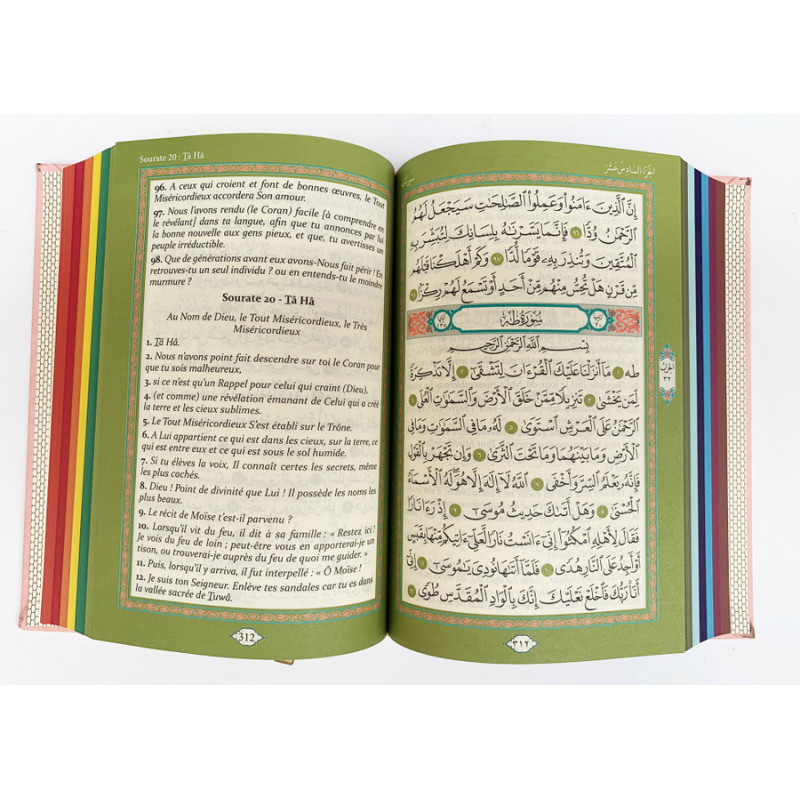 Sourate 20 : T̲â Hâ
96. A ceux qui croient et font de bonnes œuvres, le Tout
Miséricordieux accordera Son amour.
97. Nous l'avons rendu (le Coran) facile [à comprendre en
le révélant] dans ta langue, afin que tu annonces par lui
la bonne nouvelle aux gens pieux, et que, tu avertisses un
peuple irréductible.
98. Que de générations avant eux avons-Nous fait périr ! En
retrouves-tu un seul individu ? ou en entends-tu le moindre
murmure ?
Sourate 20 - T̲â Hâ
Au Nom de Dieu, le Tout Miséricordieux, le Très
Miséricordieux
1. T̲â Hâ.
2. Nous n'avons point fait descendre sur toi le Coran pour
que tu sois malheureux,
3. si ce n'est qu'un Rappel pour celui qui craint (Dieu),
4. (et comme) une révélation émanant de Celui qui a créé
la terre et les cieux sublimes.
5. Le Tout Miséricordieux S'est établi sur le Trône.
6. A Lui appartient ce qui est dans les cieux, sur la terre, ce
qui est entre eux et ce qui est sous le sol humide.
7. Si tu élèves la voix, Il connaît certes les secrets, même
les plus cachés.
8. Dieu ! Point de divinité que Lui ! Il possède les noms les
plus beaux.
9. Le récit de Moïse t'est-il parvenu ?
10. Lorsqu'il vit du feu, il dit à sa famille : « Restez ici !
Je vois du feu de loin ; peut-être vous en apporterai-je un
tison, ou trouverai-je auprès du feu de quoi me guider. »
11. Puis, lorsqu'il y arriva, il fut interpellé : « Ô Moïse !
12. Je suis ton Seigneur. Enlève tes sandales car tu es dans
la vallée sacrée de T̲uwâ.
312
الجزء السادس عشر
إِنَّ ٱلَّذِينَ ءَامَنُوا۟ وَعَمِلُوا۟ ٱلصَّٰلِحَٰتِ سَيَجْعَلُ لَهُمُ
ٱلرَّحْمَٰنُ وُدًّا ٩٦ فَإِنَّمَا يَسَّرْنَٰهُ بِلِسَانِكَ لِتُبَشِّرَ بِهِ
ٱلْمُتَّقِينَ وَتُنذِرَ بِهِۦ قَوْمًا لُّدًّا ٩٧ وَكَمْ أَهْلَكْنَا قَبْلَهُم
مِّن قَرْنٍ هَلْ تُحِسُّ مِنْهُم مِّنْ أَحَدٍ أَوْ تَسْمَعُ لَهُمْ رِكْزًۢا ٩٨
سُورَةُ طه
بِسْمِ ٱللَّهِ ٱلرَّحْمَٰنِ ٱلرَّحِيمِ
طه ١ مَآ أَنزَلْنَا عَلَيْكَ ٱلْقُرْءَانَ لِتَشْقَىٰٓ ٢ إِلَّا تَذْكِرَةً
لِّمَن يَخْشَىٰ ٣ تَنزِيلًا مِّمَّنْ خَلَقَ ٱلْأَرْضَ وَٱلسَّمَٰوَٰتِ ٱلْعُلَى ٤
ٱلرَّحْمَٰنُ عَلَى ٱلْعَرْشِ ٱسْتَوَىٰ ٥ لَهُۥ مَا فِى ٱلسَّمَٰوَٰتِ وَمَا فِى
ٱلْأَرْضِ وَمَا بَيْنَهُمَا وَمَا تَحْتَ ٱلثَّرَىٰ ٦ وَإِن تَجْهَرْ بِٱلْقَوْلِ
فَإِنَّهُۥ يَعْلَمُ ٱلسِّرَّ وَأَخْفَى ٧ ٱللَّهُ لَآ إِلَٰهَ إِلَّا هُوَ لَهُ ٱلْأَسْمَآءُ
ٱلْحُسْنَىٰ ٨ وَهَلْ أَتَىٰكَ حَدِيثُ مُوسَىٰٓ ٩ إِذْ رَءَا نَارًا
فَقَالَ لِأَهْلِهِ ٱمْكُثُوٓا۟ إِنِّىٓ ءَانَسْتُ نَارًا لَّعَلِّىٓ ءَاتِيكُم مِّنْهَا بِقَبَسٍ
أَوْ أَجِدُ عَلَى ٱلنَّارِ هُدًى ١٠ فَلَمَّآ أَتَىٰهَا نُودِىَ يَٰمُوسَىٰٓ ١١ إِنِّىٓ
أَنَا۠ رَبُّكَ فَٱخْلَعْ نَعْلَيْكَ إِنَّكَ بِٱلْوَادِ ٱلْمُقَدَّسِ طُوًى ١٢
الحزب
٣٢
٣١٢